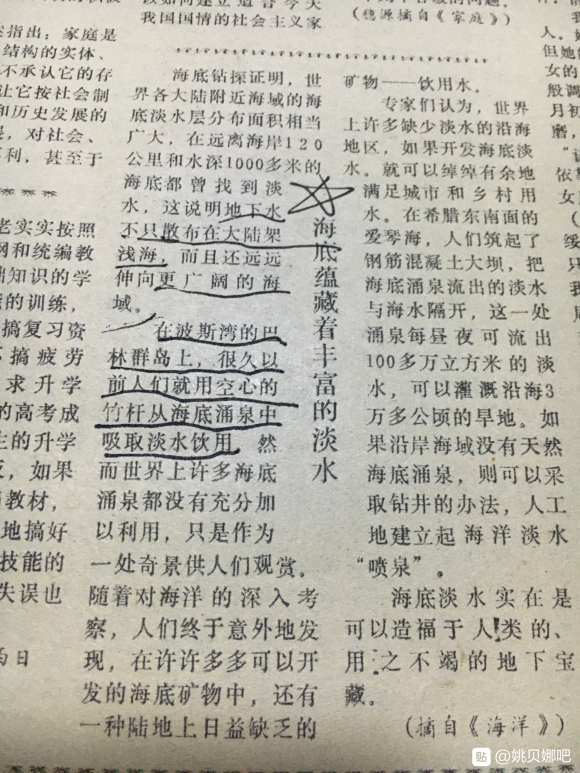 我国国情的社会主义家
（穗源摘自《家庭》）
指出：家庭是
结构的实体、
不承认它的存
让它按社会制
和历史发展的
，对社会、
利，甚至于
老实实按照
纲和统编教
础知识的学
的训练，
搞复习资
搞疲劳
求升学
的高考成
生的升学
，如果
教材，
地搞好
技能的
失误也
日
海底蕴藏着丰富的淡水
海底钻探证明，世
界各大陆附近海域的海
底淡水层分布面积相当
广大，在远离海岸120
公里和水深1000多米的
海底都曾找到淡
水，这说明地下水
不只散布在大陆架
浅海，而且还远远
伸向更广阔的海
域。
在波斯湾的巴
林群岛上，很久以
前人们就用空心的
竹杆从海底涌泉中
吸取淡水饮用。然
而世界上许多海底
涌泉都没有充分加
以利用，只是作为
一处奇景供人们观赏。
随着对海洋的深入考
察，人们终于意外地发
现，在许许多多可以开
发的海底矿物中，还有
一种陆地上日益缺乏的
矿物——饮用水。
专家们认为，世界
上许多缺少淡水的沿海
地区，如果开发海底淡
水。就可以绰绰有余地
满足城市和乡村用
水。在希腊东南面的
爱琴海，人们筑起了
钢筋混凝土大坝，把
海底涌泉流出的淡水
与海水隔开，这一处
涌泉每昼夜可流出
100多万立方米的淡
水，可以灌溉沿海3
万多公顷的旱地。如
果沿岸海域没有天然
海底涌泉，则可以采
取钻井的办法，人工
地建立起海洋淡水
“喷泉”。
海底淡水实在是
可以造福于人类的、
用之不竭的地下宝
藏。
（摘自《海洋》）
人。
但她
女的
般调
月初
贴 @姚贝娜吧